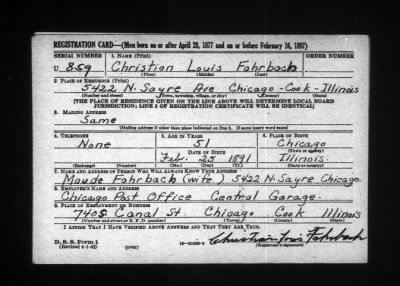 REGISTRATION CARD—(Men born on or after April 28, 1877 and on or before February 16, 1897)
SERIAL NUMBER 1. NAME (Print) ORDER NUMBER
U 859 Christian Louis Fahrbach
(First) (Middle) (Last)
2. PLACE OF RESIDENCE (Print)
5422 N. Sayre Ave Chicago - Cook - Illinois
(Number and street) (Town, township, village, or city) (County) (State)
[THE PLACE OF RESIDENCE GIVEN ON THE LINE ABOVE WILL DETERMINE LOCAL BOARD
JURISDICTION; LINE 2 OF REGISTRATION CERTIFICATE WILL BE IDENTICAL]
3. MAILING ADDRESS
Same
(Mailing address if other than place indicated on line 2. If same insert word same)
4. TELEPHONE 5. AGE IN YEARS 6. PLACE OF BIRTH
None 51 Chicago
DATE OF BIRTH (Town or county)
Feb. 25 1891 Illinois.
(Exchange) (Number) (Mo.) (Day) (Yr.) (State or country)
7. NAME AND ADDRESS OF PERSON WHO WILL ALWAYS KNOW YOUR ADDRESS
Maude Fahrbach (wife) 5422 N. Sayre Chicago.
8. EMPLOYER'S NAME AND ADDRESS
Chicago Post Office Central Garage.
9. PLACE OF EMPLOYMENT OR BUSINESS
740 S Canal St. Chicago Cook Illinois
(Number and street or R. F. D. number) (Town) (County) (State)
I AFFIRM THAT I HAVE VERIFIED ABOVE ANSWERS AND THAT THEY ARE TRUE.
D. S. S. Form 1 Christian Louis Fahrbach
(Revised 4-1-42) (over) (Registrant's signature)